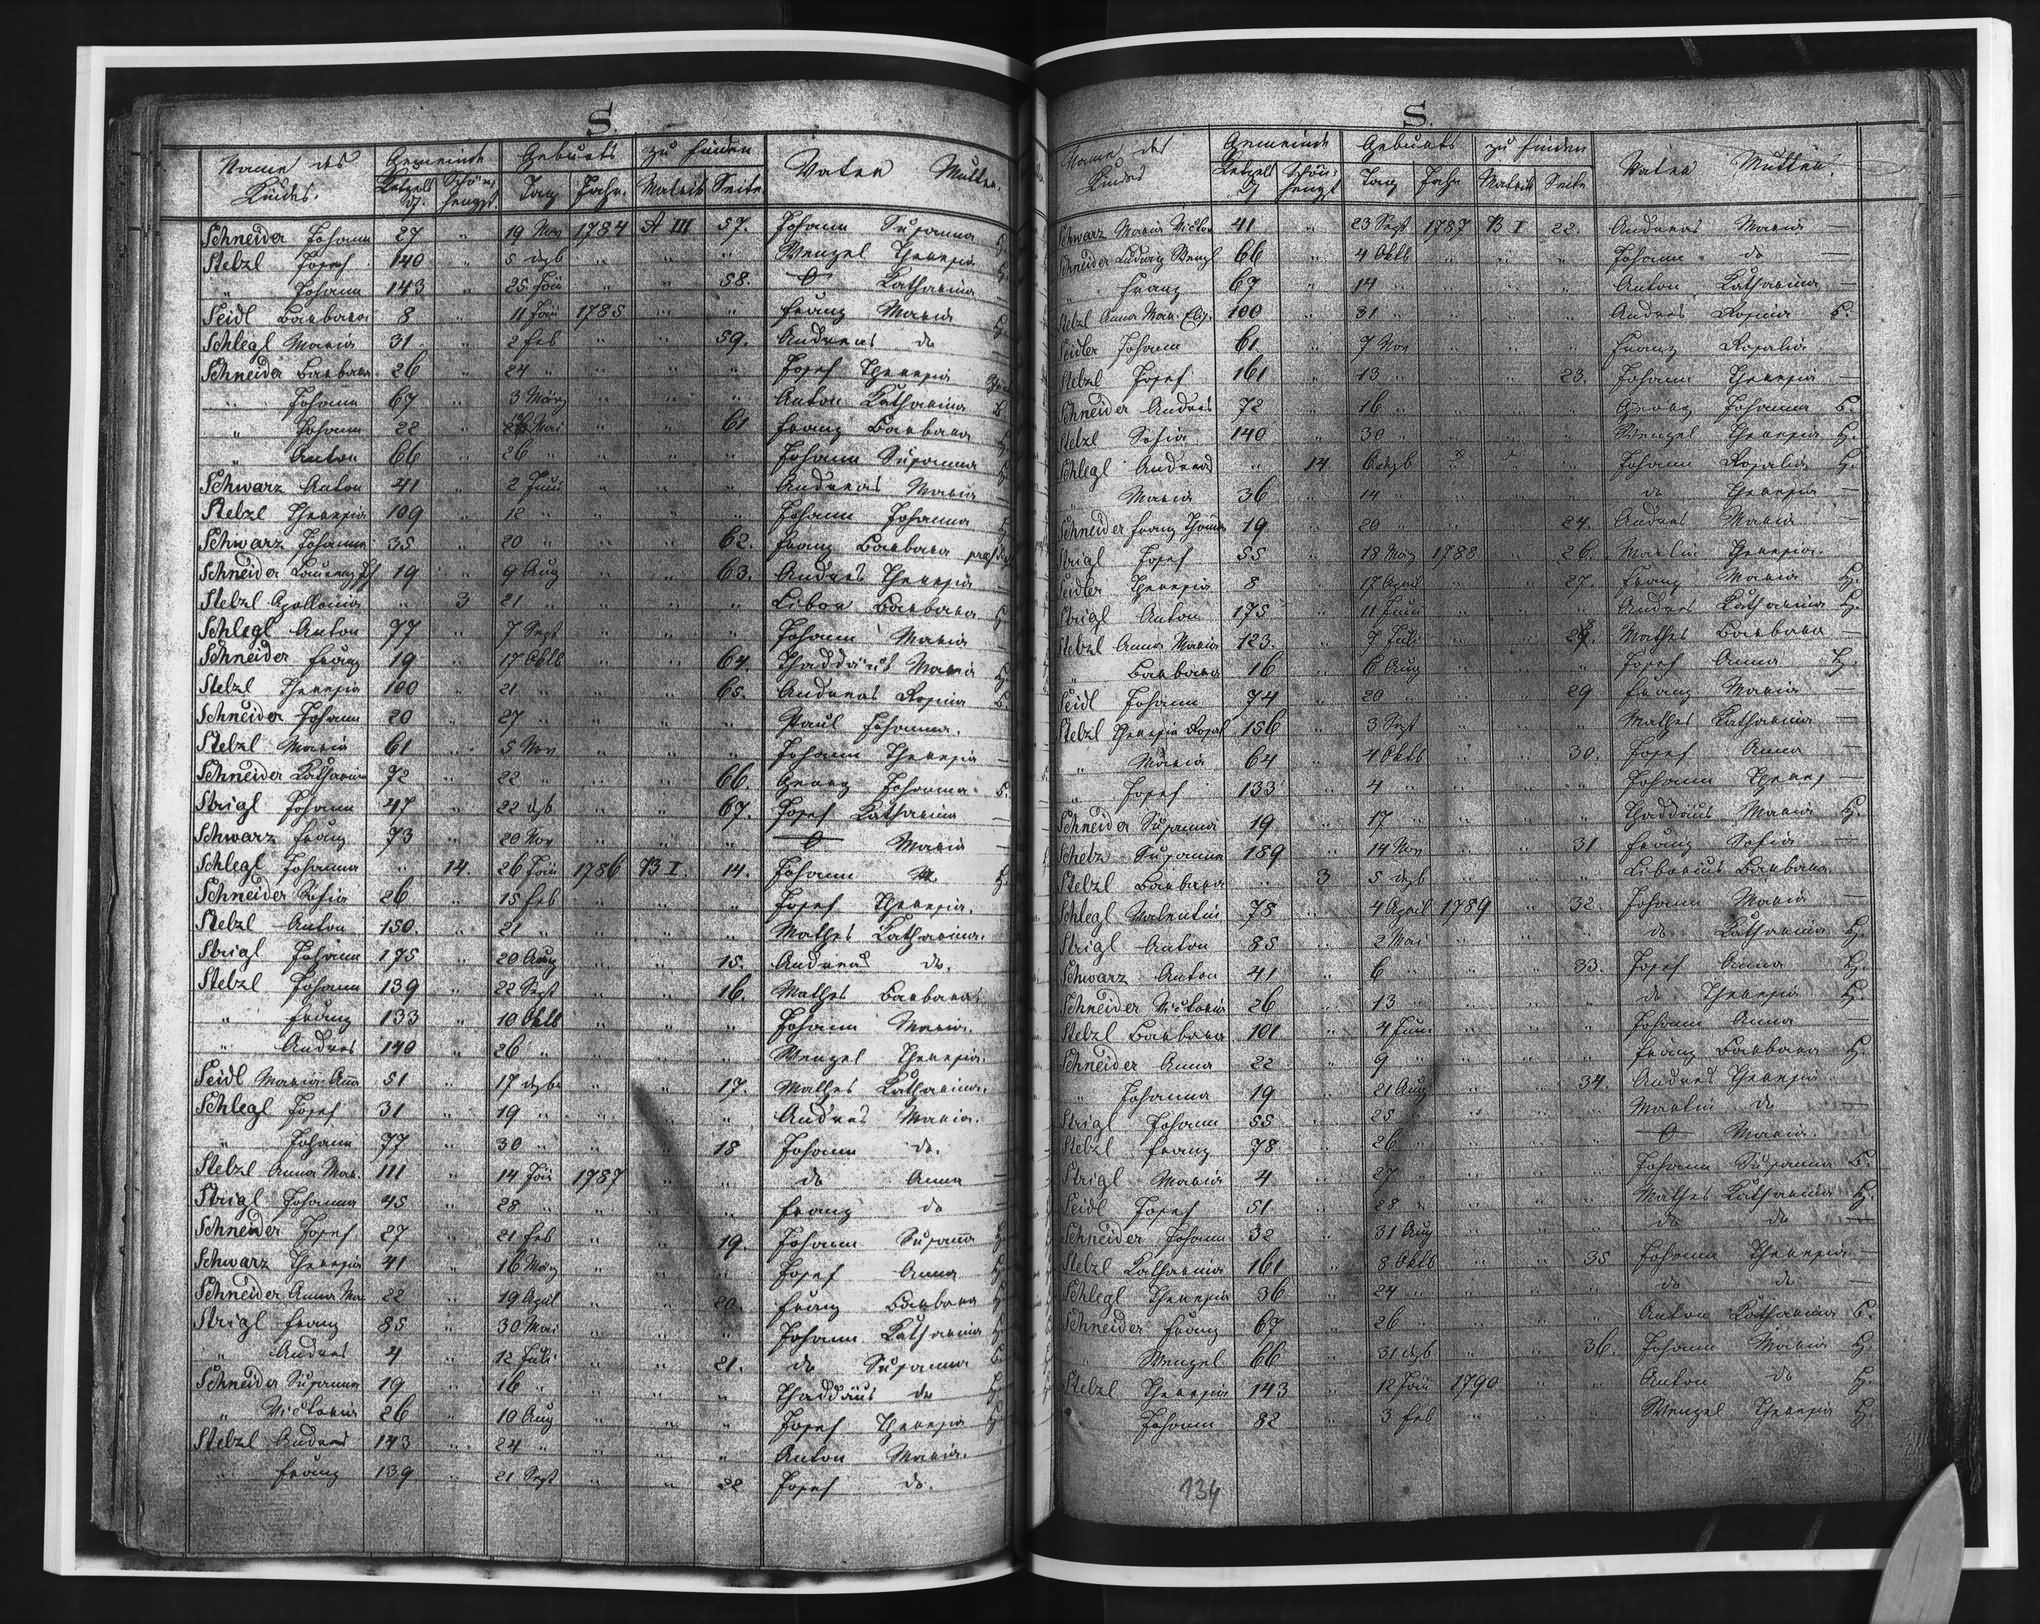 S.
Name des Kindes. Gemeinde Geburts zu finden Vater Mutter.
Ketzelsd. Schönhengst. Tag Jahr. Matrik Seite.
Schneider Johann 27 " 19 Nov 1784 A III 57. Johann Susanna
Stelzl Josef 140 " 5 dezb " " " Wenzel Theresia
" Johann 143 " 25 Jän " " 58. O Katharina
Seidl Barbara 8 " 11 Jän 1785 " " Franz Maria
Schlegl Maria 31 " 2 feb " " 59. Andreas do
Schneider Barbara 26 " 24 " " " " Josef Theresia
" Johann 67 " 3 März " " " Anton Katharina
" Johann 22 " Mai " " 61 Franz Barbara
" Anton 66 " 26 " " " " Johann Susanna
Schwarz Anton 41 " 2 Juni " " " Andreas Maria
Stelzl Theresia 109 " 12 " " " " Johann Johanna
Schwarz Johanna 35 " 20 " " " 62. Franz Barbara
Schneider Laurenz 19 " 9 Aug " " 63. Andres Theresia
Stelzl Apollonia " 3 21 " " " " Libor Barbara
Schlegl Anton 77 " 7 Sept " " " Johann Maria
Schneider Franz 19 " 17 Oktb " " 64. Thaddäus Maria
Stelzl Theresia 100 " 21 " " " 65. Andreas Rosina
Schneider Johann 20 " 27 " " " " Paul Johanna.
Stelzl Maria 61 " 5 Nov " " " Johann Theresia
Schneider Katharina 72 " 22 " " " 66. Georg Johanna
Strigl Johann 47 " 22 dzb " " 67. Josef Katharina
Schwarz Franz 73 " 20 Nov " " " O Maria
Schlegl Johanna " 14. 26 Jän 1786 B I. 14. Johann
Schneider Sofia 26 " 15 feb " " " Josef Theresia.
Stelzl Anton 150. " 21 " " " " Mathes Katharina.
Strigl Johann 175 " 20 Aug " " 15. Andreas do.
Stelzl Johann 139 " 22 Sept " " 16. Mathes Barbara
" Franz 133 " 10 Oktb " " " Johann Maria.
" Andres 140 " 26 " " " " Wenzel Theresia.
Seidl Maria Ana 51 " 17 dezbr " " 17. Mathes Katharina.
Schlegl Josef 31 " 19 " " " " Andres Maria.
" Johann 77 " 30 " " " 18 Johann do.
Stelzl Anna Mar. 111 " 14 Jän 1787 " " do Anna
Strigl Johanna 45 " 28 " " " " Franz do
Schneider Josef 27 " 21 feb " " 19. Johann Susana
Schwarz Theresia 41 " 16 März " " " Josef Anna
Schneider Anna Ma 22 " 19 April " " 20. Franz Barbara
Strigl Franz 85 " 30 Mai " " " Johann Katharina
" Andres 4 " 12 Juli " " 21. do Susanna
Schneider Susanna 19 " 16 " " " " Thaddäus do
" Victoria 26 " 10 Aug " " " Josef Theresia
Stelzl Andres 143 " 24 " " " " Anton Maria.
" Franz 139 " 21 Sept " " 22 Josef do.
S.
Name des Kindes Gemeinde Geburts zu finden Vater Mutter.
Ketzelsd. Schönhengst Tag Jahr Matrik Seite
Schwarz Maria Victor 41 " 23 Sept 1787 B I 22. Andreas Maria —
Schneider Ludwig Wenzl 66 " 4 Oktb " " " Johann do —
" Franz 67 " 14 " " " " Anton Katharina —
Stelzl Anna Mar. Elis. 100 " 31 " " " " Andres Rosina
Seidler Johann 61. " 7 Nov " " " Franz Rosalia
Stelzl Josef 161 " 13 " " " 23. Johann Theresia —
Schneider Andres 72 " 16 " " " " Georg Johanna
Stelzl Sofia 140 " 30 " " " " Wenzel Theresia
Schlegl Andreas " 14. 6 dezb " " " Johann Rosalia
" Maria 36 " 14 " " " " do Theresia —
Schneider Franz Thom 19 " 20 " " " 24. Andres Maria —
Strigl Josef 55 " 18 März 1788 " 26. Martin Theresia.
Seidler Theresia 8 " 17 April " " 27. Franz Maria
Strigl Anton 175 " 11 Juni " " " Andres Katharina
Stelzl Anna Maria 123. " 7 Juli " " 28. Mathes Barbara —
" Barbara 16 " 6 Aug " " " Josef Anna
Seidl Johann 74 " 20 " " " 29 Franz Maria —
Stelzl Theresia Rosal 156 " 3 Sept " " " Mathes Katharina —
" Maria 64 " 4 Oktb " " 30. Josef Anna —
" Josef 133 " 4 " " " " Johann Theres —
Schneider Susanna 19 " 17 " " " " Thaddäus Maria
Schelz Susanna 189 " 14 Nov " " 31 Franz Sofia —
Stelzl Barbara " 3 5 dezb " " " Liborius Barbara
Schlegl Valentin 78 " 4 April 1789 " 32 Johann Maria —
Strigl Anton 85 " 2 Mai " " " do Katharina
Schwarz Anton 41 " 6 " " " 33. Josef Anna
Schneider Victoria 26 " 13 " " " " do Theresia
Stelzl Barbara 101 " 4 Juni " " " Johann Anna —
Schneider Anna 22 " 9 " " " " Franz Barbara
" Johanna 19 " 21 Aug " " 34. Andres Theresia
Strigl Johann 55 " 25 " " " " Martin do —
Stelzl Franz 78 " 26 " " " " O Maria.
Strigl Maria 4 " 27 " " " " Johann Susanna
Seidl Josef 51. " 28 " " " " Mathes Katharina
Schneider Johann 32 " 31 Aug " " " do do —
Stelzl Katharina 161 " 8 Oktb " " 35 Johann Theresia —
Schlegl Theresia 36 " 24 " " " " do do —
Schneider Franz 67 " 26 " " " " Anton Katharina
" Wenzel 66 " 31 dezb " " 36. Johann Maria
Stelzl Theresia 143 " 12 Jän 1790 " " Anton do
" Johann 82 " 3 feb " " " Wenzel Theresia
134